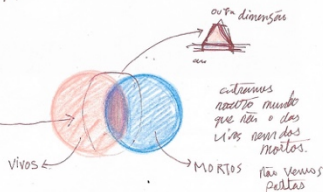 outra dimensão
entramos
noutro mundo
que não o dos
vivos nem dos
mortos.
VIVOS
MORTOS
não vemos